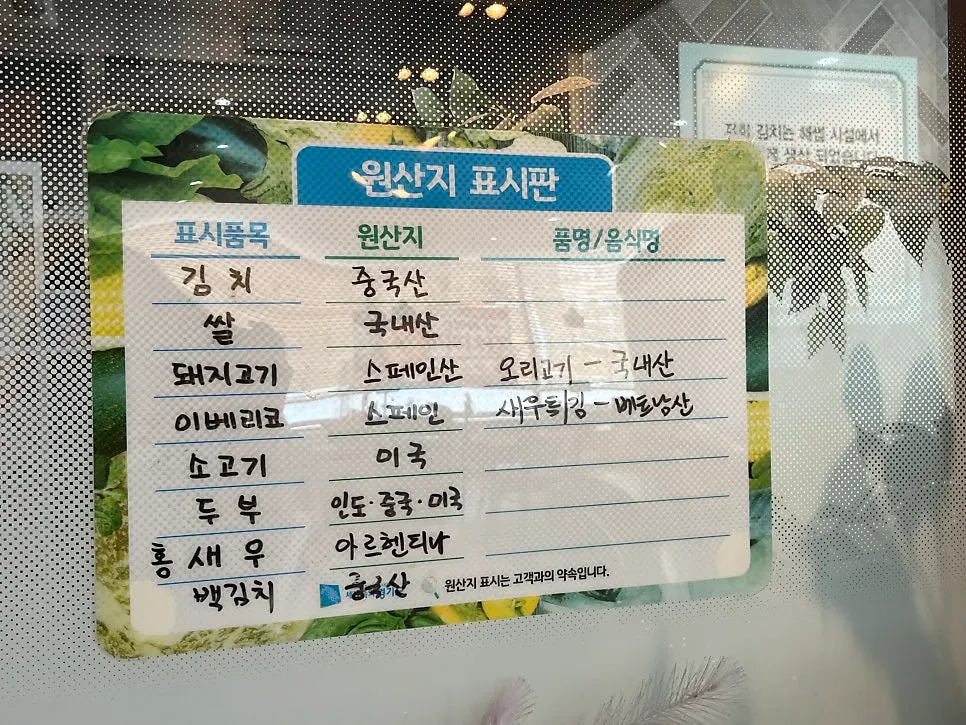 원산지 표시판
표시품목 원산지 품명/음식명
김치 중국산
쌀 국내산
돼지고기 스페인산 오리고기 - 국내산
이베리코 스페인 새우튀김 - 베트남산
소고기 미국
두부 인도·중국·미국
홍새우 아르헨티나
백김치 중국산
원산지 표시는 고객과의 약속입니다.
김치는 해썹 시설에서